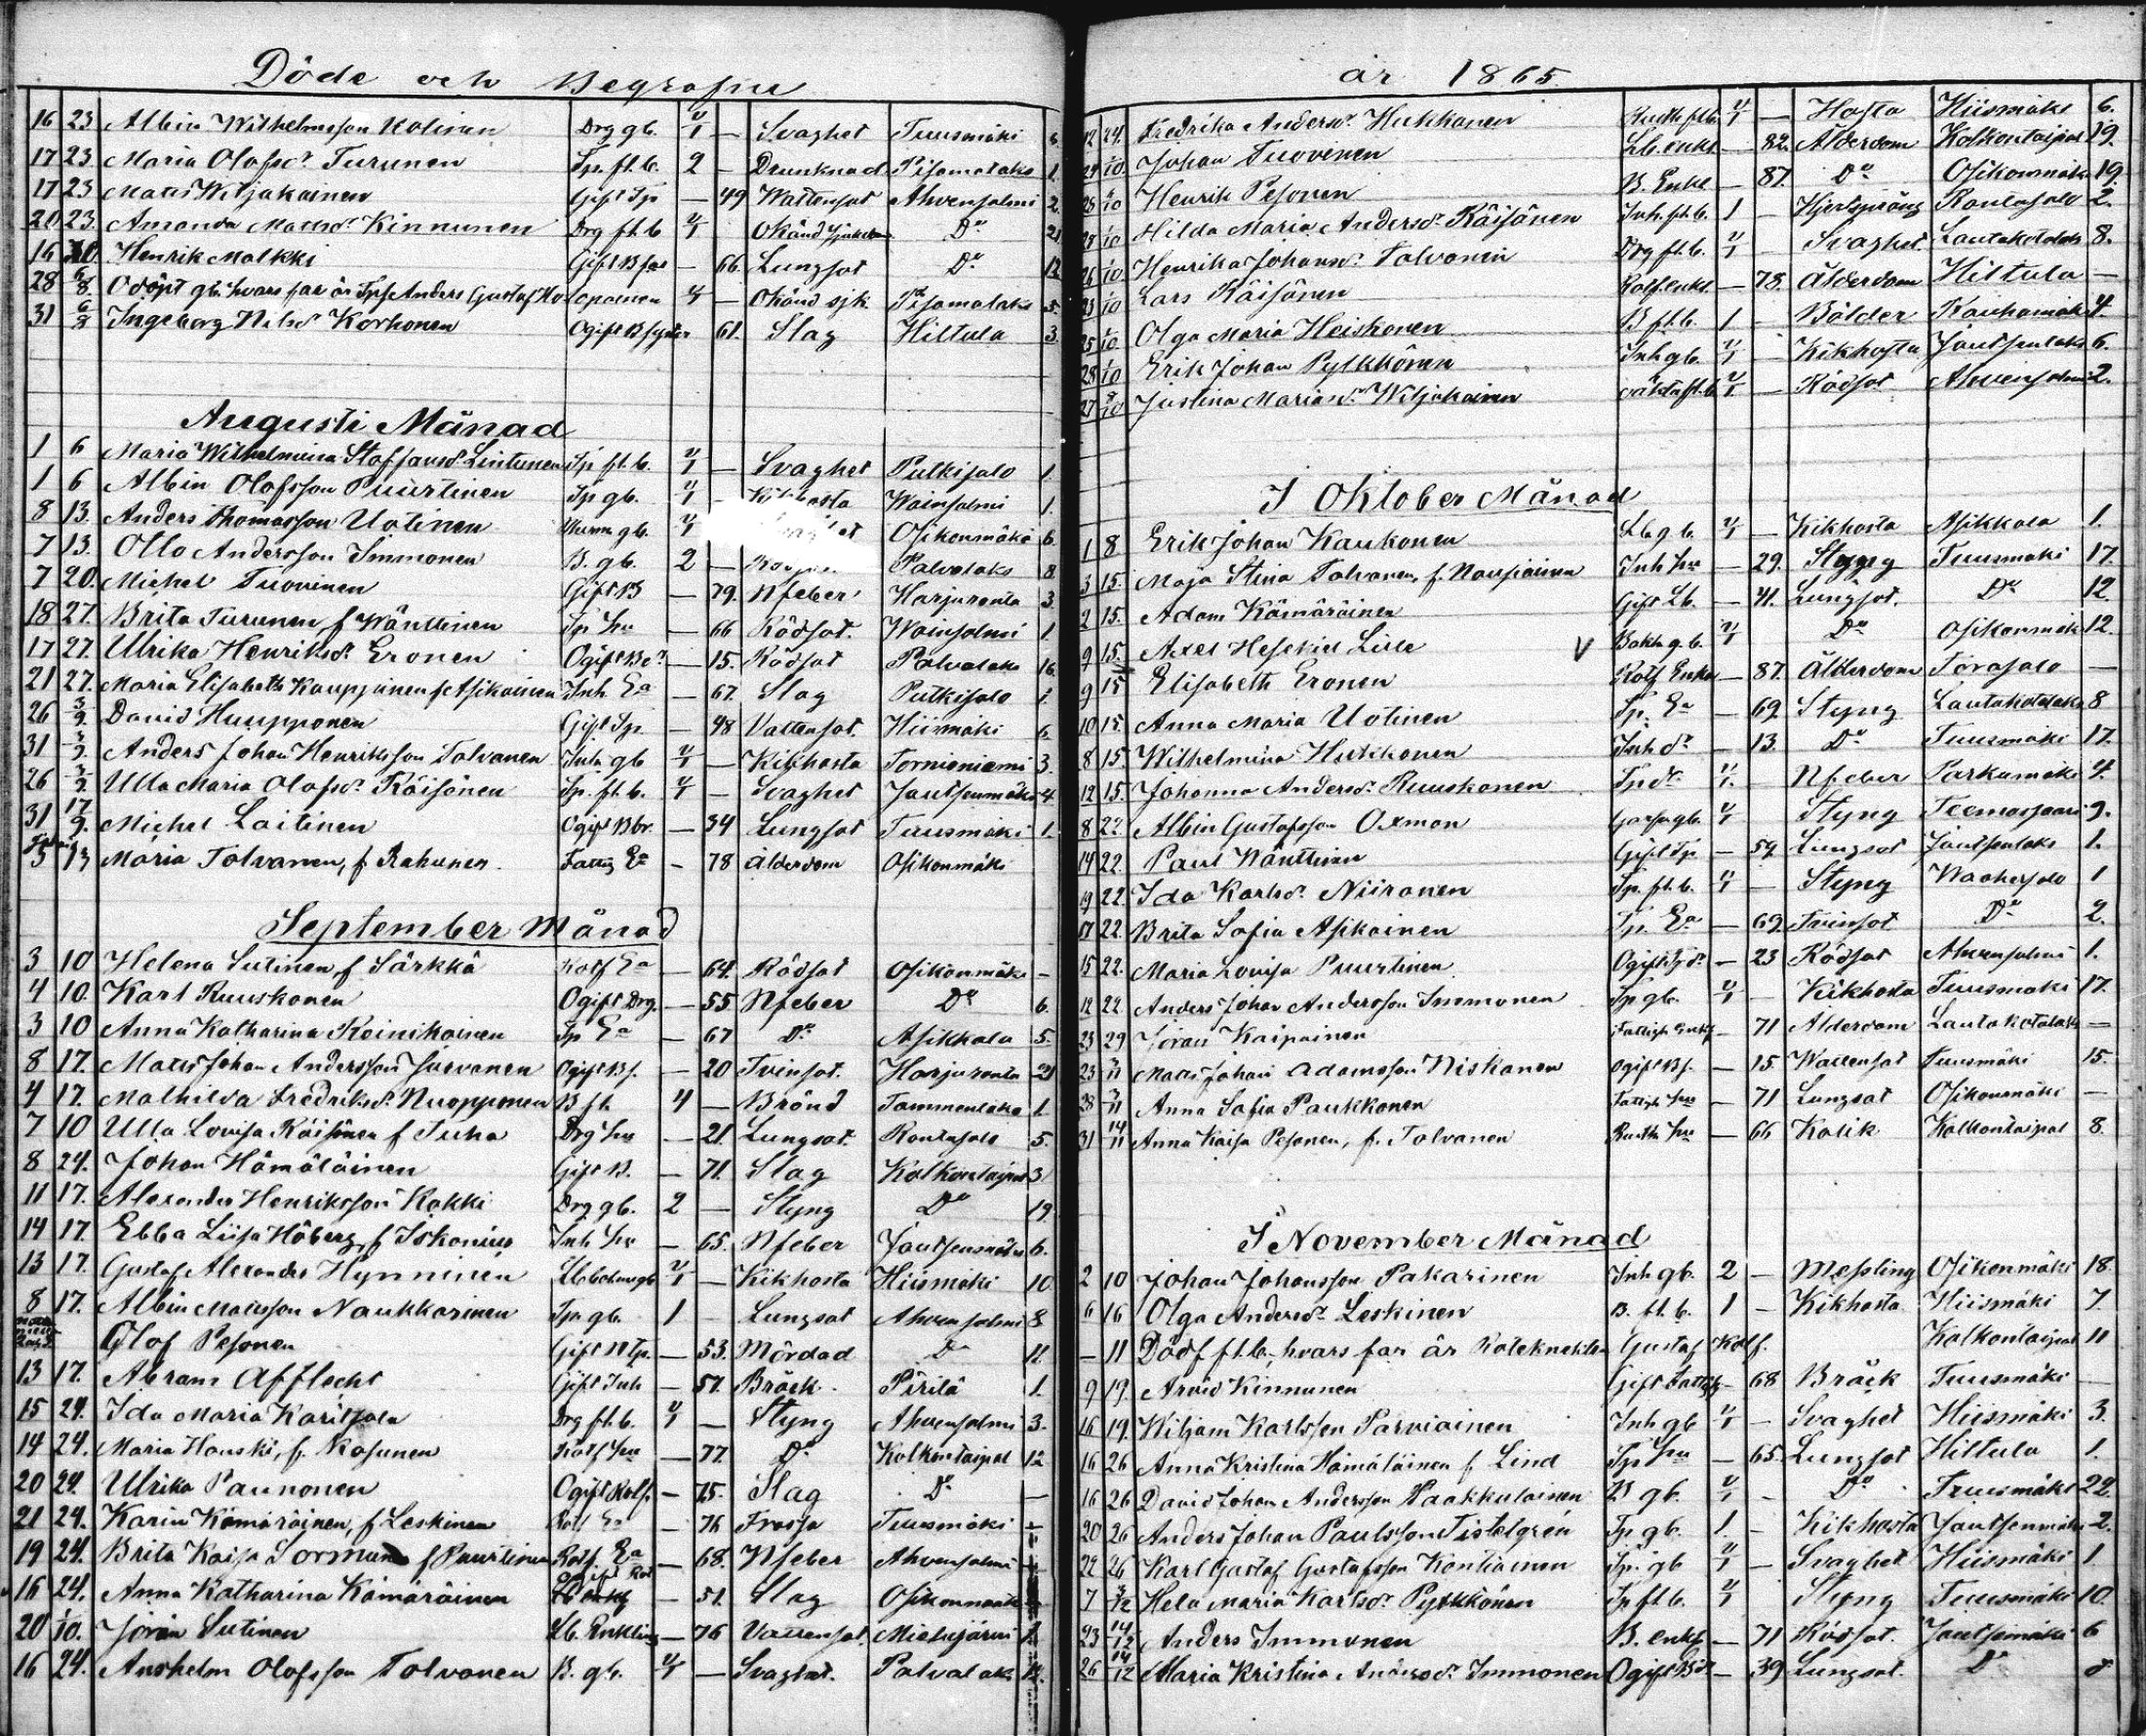 Döde och Begrafne
16 23 Albin Wilhelmsson Kolinen Drg gb. — Svaghet Tuusmäki
17 23. Maria Olofsdr Turunen Tp. fl. b. 2 — Drunknad Pisamalaks 1.
17 23 Matts Wiljakainen Gift Tp — 49 Wattensot Ahvensalmi 2.
20 23. Amanda Mattsdr Kinnunen Drg fl. b — Okänd sjukdom Do 21
16 Henrik Malkki Gift — 66. Lungsot Do 12
28 6/8 Odöpt gb. hvars far är Anders Gustaf — Okänd sjk. Pisamalaks 5.
31 6/8 Ingeborg Nilsdr Korhonen Ogift — 61. Slag Hiltula 3.
Augusti Månad
1 6 Maria Wilhelmina Staffansdr Lintunen Tp. fl. b. — Svaghet Putkisalo 1.
1 6 Albin Olofsson Puurtinen Tp gb. — Wainsalmi 1.
8 13. Anders Thomasson Uotinen gb. Osikonmäki 6.
7 13. Otto Andersson Immonen B. gb. 2 — Palvalaks 8
7 20. Michel Tuovinen Gift B — 79. Nfeber Harjuranta 3
18 27. Brita Turunen f Wänttinen Tp hu — 66 Rödsot. Wainsalmi 1.
17 27. Ulrika Henriksdr Eronen Ogift Bdr — 15. Rödsot Palvalaks 16
21 27. Maria Elisabeth Kauppinen f Asikainen Inh Ea — 67. Slag Putkisalo 1.
26 3/9. David Huupponen Gift Tp. — 48 Vattensot. Hiismäki 6
31 3/9. Anders Johan Henriksson Tolvanen Inh gb — Kikhosta Tornioniemi 3.
26 3/9. Ulla Maria Olofsdr Räisänen Tp. fl. b. — Svaghet Jautsenmäki 4
31 17/9. Michel Laitinen Ogift Bbr. — 34 Lungsot Tuusmäki 1.
5 13 Maria Tolvanen, f Rahunen. Fattig Ea — 78 Ålderdom Osikonmäki
September Månad
3 10 Helena Sutinen, f Särkkä Rotf Ea — 64. Rödsot Osikonmäki —
4 10. Karl Ruuskonen Ogift Drg. — 55 Nfeber Do 6.
3 10 Anna Katharina Reinikainen Tp Ea — 67 Do Asikkala 5.
8 17. Matts Johan Andersson Jurvanen Ogift — 20 Tvinsot. Harjuranta 21
4 17. Mathilda Fredriksdr Nuopponen B fl. 4 — Bränd Tammenlaks 1.
7 10 Ulla Lovisa Räisänen f Tuha Drg hu — 21. Lungsot. Rantasalo 5.
8 24. Johan Hämäläinen Gift B. — 71. Slag Kolkontaipal 3
11 17. Alexander Henriksson Kakki Drg gb. 2 — Styng Do 19
14 17. Ebba Liisa Höberg, f Iskanius Inh hu — 65. Nfeber 6.
13 17. Gustaf Alexander Hynninen — Kikhosta Hiismäki 10
8 17. Albin Mattsson Naukkarinen Tp. gb. 1 Lungsot Ahvensalmi 8
Olof Pesonen Gift — 53. Mördad Do 11.
13 17. Abram Afflecht Gift Inh — 57. Bräck Pirilä 1.
15 24. Ida Maria Karitsala Drg fl. b. — Styng Ahvensalmi 3.
14 24. Maria Hauski, f. Kosunen Rotf hu — 77. Do Kolkontaipal 12
20 24. Ulrika Paunonen Ogift Rotf. — 75. Slag Do —
21 24. Karin Kämäräinen, f Leskinen Rotf Ea — 76 Frossa Tuusmäki
19 24. Brita Kaisa Sormunen f Puurtinen Rotf. Ea — 68. Nfeber Ahvensalmi
16 24. Anna Katharina Kämäräinen — 51. Slag Osikonmäki
20 1/10. Jöran Sutinen Lb. Enkling — 76 Vattensot. Mielujärvi
16 24. Anshelm Olofsson Tolvanen B. gb. — Svaghet. Palvalaks
år 1865.
12 24. Fredrika Andersdr Hukkanen — Hosta Hiismäki 6.
1/10. Johan Tuovinen Lb. enkl. — 82. Ålderdom Kolkontaipal 19.
1/10 Henrik Pesonen B. Enkl — 87. Do Osikonmäki 19.
1/10 Hilda Maria Andersdr Räisänen Inh. fl. b. 1 — Hjertsprång Rantasalo 2.
26 1/10. Henrika Johansdr Tolvanen Drg fl. b. — Svaghet. Lautakotalaks 8.
1/10 Lars Räisänen Rotf. enkl. — 78. Ålderdom Hiltula —
25 1/10. Olga Maria Heiskonen B fl. b. 1 — Bölder Kauhamäki 4.
28 1/10 Erik Johan Pylkkönen Inh gb. — Kikhosta Jautsenlaks 6.
27 8/10 Justina Mariadr Wiljakainen — Rödsot Ahvensalmi 2.
I Oktober Månad
1 8 Erik Johan Kaukonen Lb g b. — Kikhosta Asikkala 1.
3 15. Maja Stina Tolvanen, f. Naupainen Inh hu — 29. Styng Tuusmäki 17.
2 15. Adam Kämäräinen Gift Lb. — 41. Lungsot. Do 12
9 15. Axel Hesekiel Lille V g. b. Do Osikonmäki 12.
9 15 Elisabeth Eronen Rotf Enka — 87. Ålderdom Torasalo —
10 15. Anna Maria Uotinen Tp. Ea — 69 Styng Lautakotalaks 8
8 15. Wilhelmina Hukkonen Inh dr — 13. Do Tuusmäki 17.
12 15. Johanna Andersdr Ruuskonen Tp dr — Nfeber Parkumäki 4.
8 22 Albin Gustafsson Oxman gb. Styng Teemassaari 9.
14 22. Paul Wänttinen Gift Tp — 54 Lungsot Jautsenlaks 1.
19 22. Ida Karlsdr Niiranen Tp. fl. b. — Styng Waahersalo 1
17 22. Brita Sofia Asikainen Tp. Ea — 69 Tvinsot Do 2.
15 22. Maria Lovisa Puurtinen Ogift Tp dr — 23 Rödsot Ahvensalmi 1.
12 22. Anders Johan Andersson Immonen Tp gb. — Kikhosta Tuusmäki 17.
23 29 Jöran Kaipainen — 71 Ålderdom Lautakotalaks —
23 Matts Johan Adamsson Niskanen Ogift — 15. Wattensot Tuusmäki 15.
28 Anna Sofia Paukkonen Fattigh hu — 71 Lungsot Osikonmäki —
31 14/11 Anna Kaisa Pesonen, f. Tolvanen hu — 66 Kolik Kolkontaipal 8.
I November Månad
2 10 Johan Johansson Pakarinen Inh gb. 2 — Messling Osikonmäki 18.
6 16 Olga Andersdr Leskinen B. fl. b. 1 — Kikhosta Hiismäki 7.
— 11 Dödf fl. b., hvars far är Gustaf Kolkontaipal 11
9 19. Arvid Kinnunen Gift Fattigh — 68 Bräck Tuusmäki —
16 19. Wiljam Karlsson Parviainen Inh gb — Svaghet Hiismäki 3.
16 26 Anna Kristina Hämäläinen f. Lind Tp hu — 65. Lungsot Hiltula 1.
16 26 David Johan Andersson Haakkulainen B gb. — Do Tuusmäki 22.
20 26 Anders Johan Paulsson Tistelgrén Tp gb. 1. — Kikhosta Jautsenmäki 2.
22 26 Karl Gustaf Gustafsson Kontiainen Tp. gb — Svaghet Hiismäki 1
7 3/12 Hela Maria Karlsdr Pylkkönen Tp fl b. Styng Tuusmäki 10.
23 14/12 Anders Immonen B. enkl — 71 Rödsot. Jautsenmäki 6
26 14/12 Maria Kristina Andersdr Immonen Ogift — 39 Lungsot. Do 8